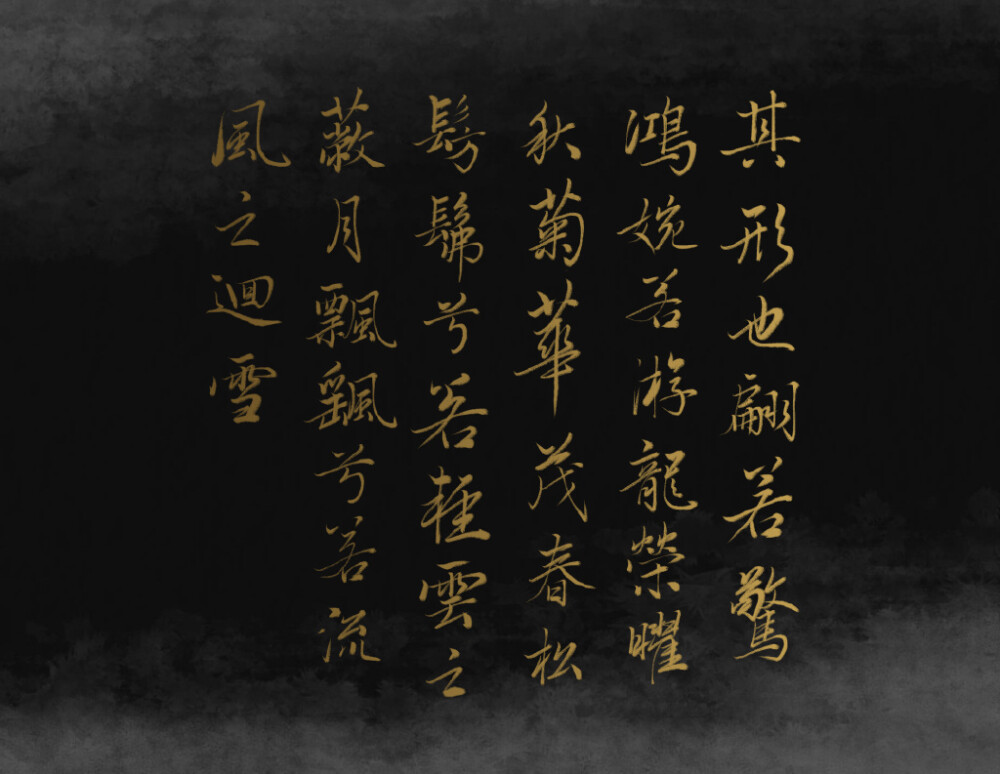 其形也翩若驚
鴻婉若游龍榮曜
秋菊華茂春松
髣髴兮若輕雲之
蔽月飄飖兮若流
風之迴雪